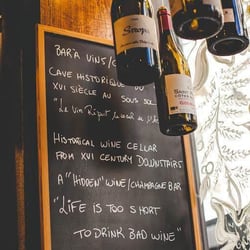 BAR À VINS/C
CAVE HISTORIQUE DU
XVI SIÈCLE AU SOUS SOL
"Le Vin Réjouit le cœur de l'
HISTORICAL WINE CELLAR
FROM XVI CENTURY DOWNSTAIRS
A "HIDDEN" WINE/CHAMPAGNE BAR
"LIFE IS TOO SHORT
TO DRINK BAD WINE"